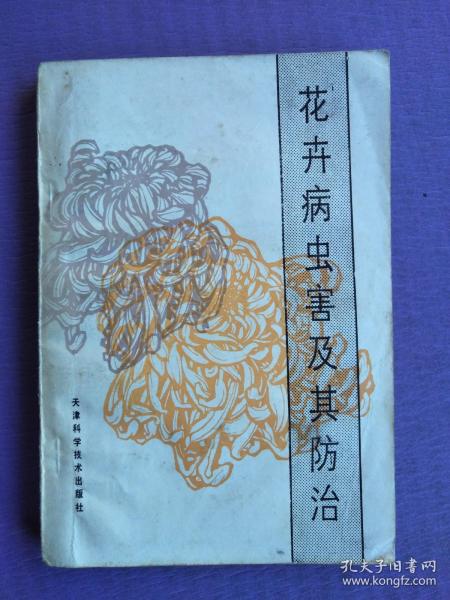 花卉病虫害及其防治
天津科学技术出版社
孔夫子旧书网
www.kongfz.com